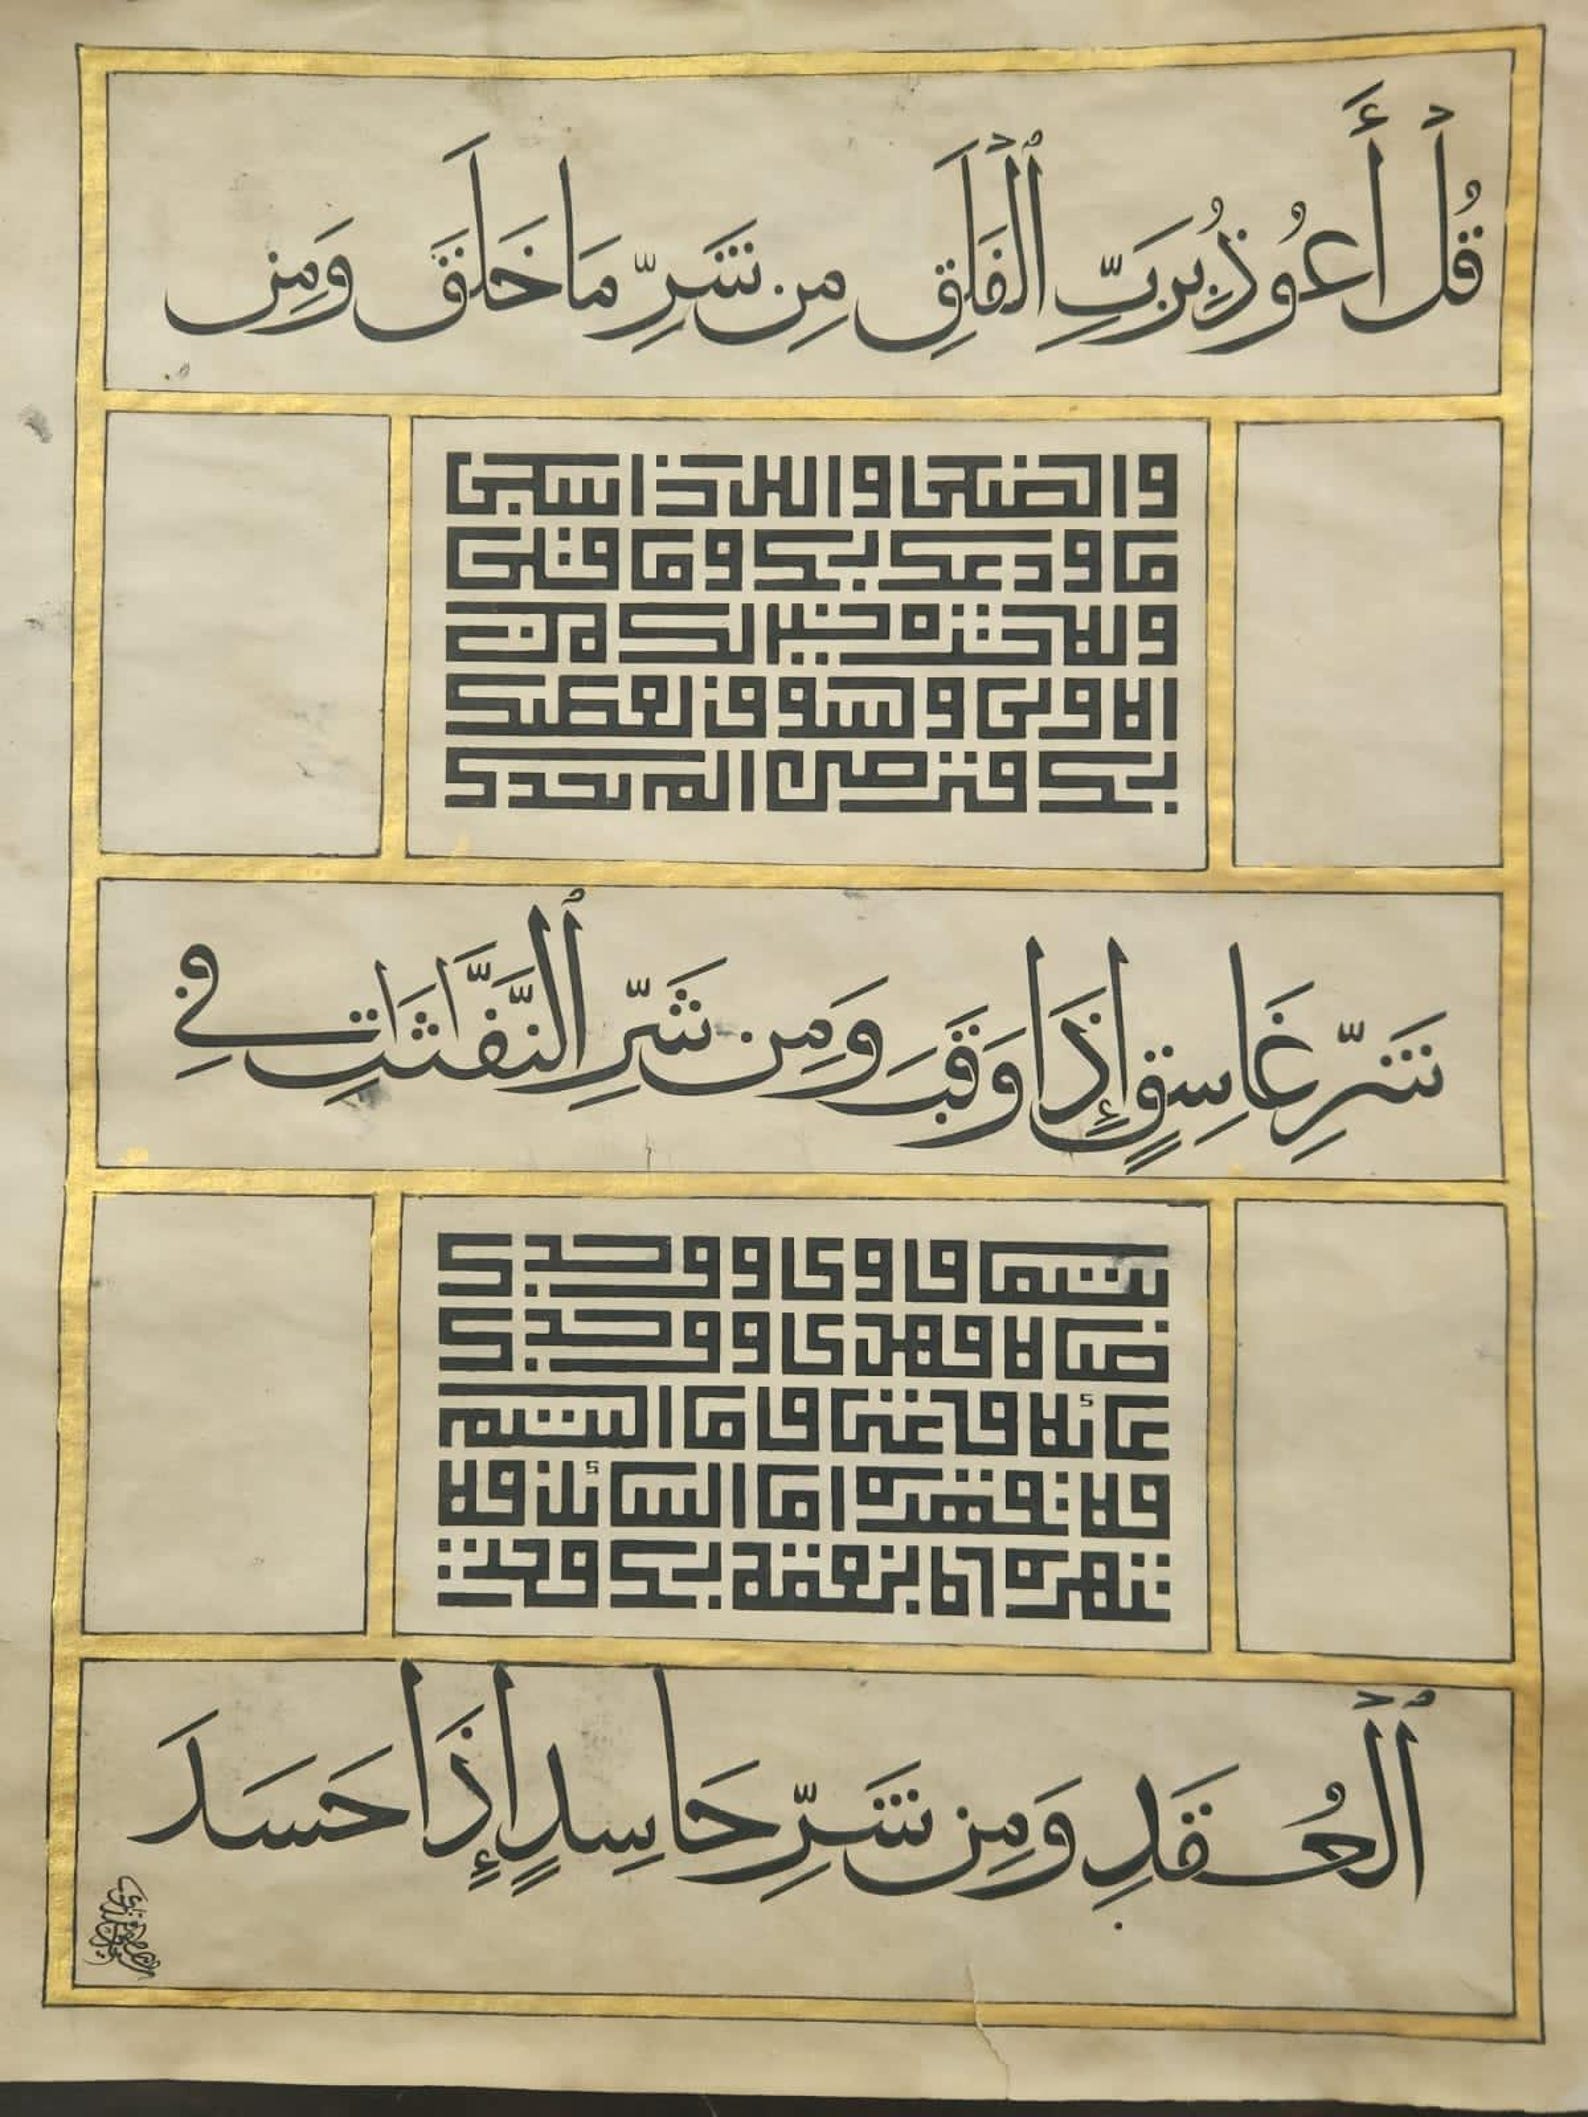 قُلْ أَعُوذُ بِرَبِّ ٱلْفَلَقِ مِن شَرِّ مَا خَلَقَ وَمِن
والضحى والليل اذا سجى
ما ودعك ربك وما قلى
وللاخرة خير لك من
الاولى ولسوف يعطيك
ربك فترضى الم يجدك
شَرِّ غَاسِقٍ إِذَا وَقَبَ وَمِن شَرِّ ٱلنَّفَّاثَاتِ فِي
يتيما فاوى ووجدك
ضالا فهدى ووجدك
عائلا فاغنى فاما اليتيم
فلا تقهر واما السائل فلا
تنهر واما بنعمة ربك فحدث
ٱلْعُقَدِ وَمِن شَرِّ حَاسِدٍ إِذَا حَسَدَ